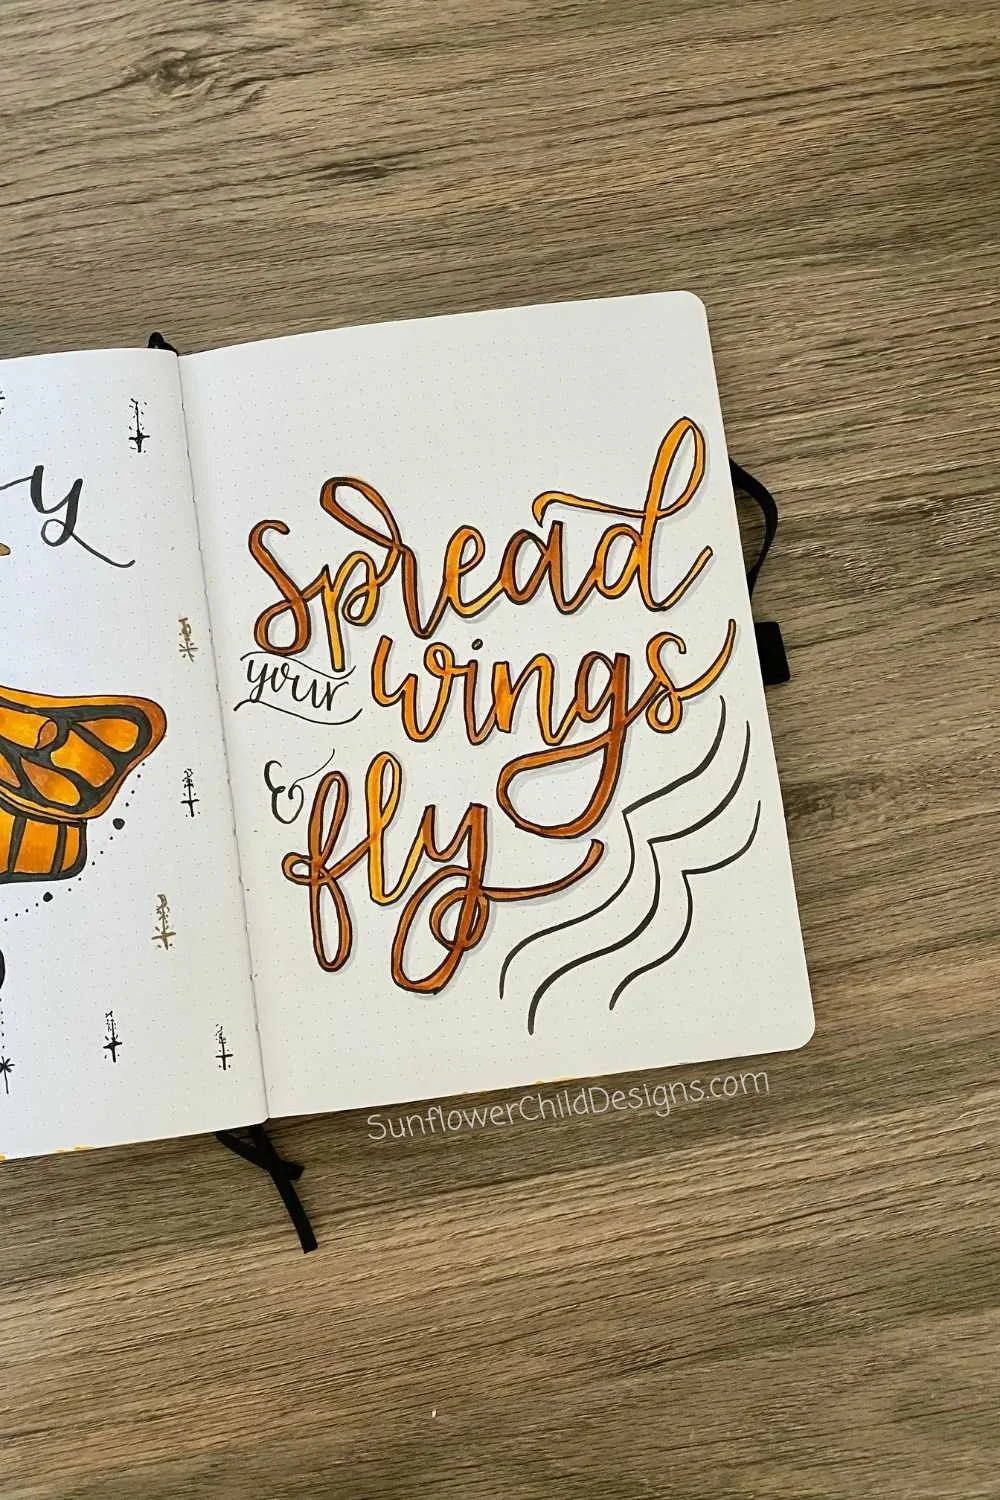 y
spread
your wings
& fly
SunflowerChildDesigns.com